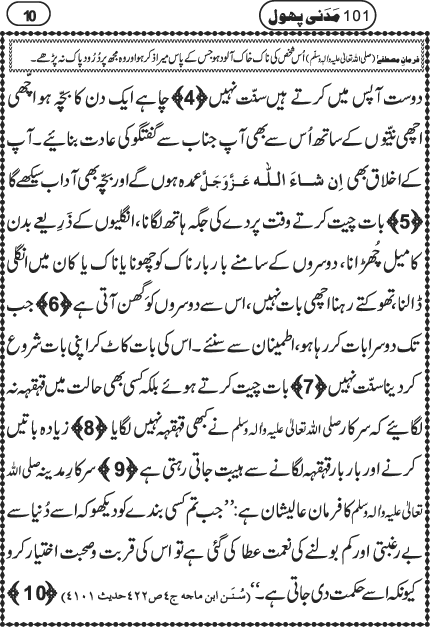 101 مَدَنی پھول
10
فرمانِ مصطفےٰ (صلی اللہ تعالیٰ علیہ واٰلہٖ وسلّم) اُس شخص کی ناک خاک آلود ہو جس کے پاس میرا ذکر ہو اور وہ مجھ پر دُرُود پاک نہ پڑھے۔
دوست آپس میں کرتے ہیں سنّت نہیں ﴿4﴾ چاہے ایک دن کا بچّہ ہو اچّھی
اچھی نیّتوں کے ساتھ اُس سے بھی آپ جناب سے گفتگو کی عادت بنائیے۔ آپ
کے اخلاق بھی اِن شاءَ اللہ عَزَّوَجَلَّ عمدہ ہوں گے اور بچّہ بھی آداب سیکھے گا
﴿5﴾ بات چیت کرتے وقت پردے کی جگہ ہاتھ لگانا، انگلیوں کے ذَرِیعے بدن
کا میل چُھڑانا، دوسروں کے سامنے بار بار ناک کو چھونا یا ناک یا کان میں انگلی
ڈالنا، تھوکتے رہنا اچھی بات نہیں، اس سے دوسروں کو گھن آتی ہے ﴿6﴾ جب
تک دوسرا بات کر رہا ہو، اطمینان سے سنئے۔ اس کی بات کاٹ کر اپنی بات شروع
کر دینا سنّت نہیں ﴿7﴾ بات چیت کرتے ہوئے بلکہ کسی بھی حالت میں قہقہہ نہ
لگائیے کہ سرکار صلی اللہ تعالیٰ علیہ واٰلہٖ وسلم نے کبھی قہقہہ نہیں لگایا ﴿8﴾ زیادہ باتیں
کرنے اور بار بار قہقہہ لگانے سے ہیبت جاتی رہتی ہے ﴿9﴾ سرکارِ مدینہ صلی اللہ
تعالیٰ علیہ واٰلہٖ وسلم کا فرمانِ عالیشان ہے: ’’جب تم کسی بندے کو دیکھو کہ اسے دُنیا سے
بے رغبتی اور کم بولنے کی نعمت عطا کی گئی ہے تو اس کی قربت و صحبت اختیار کرو
کیونکہ اسے حکمت دی جاتی ہے۔‘‘ (سُنَن ابن ماجہ ج٤ ص٤٢٢ حدیث ٤١٠١) ﴿10﴾